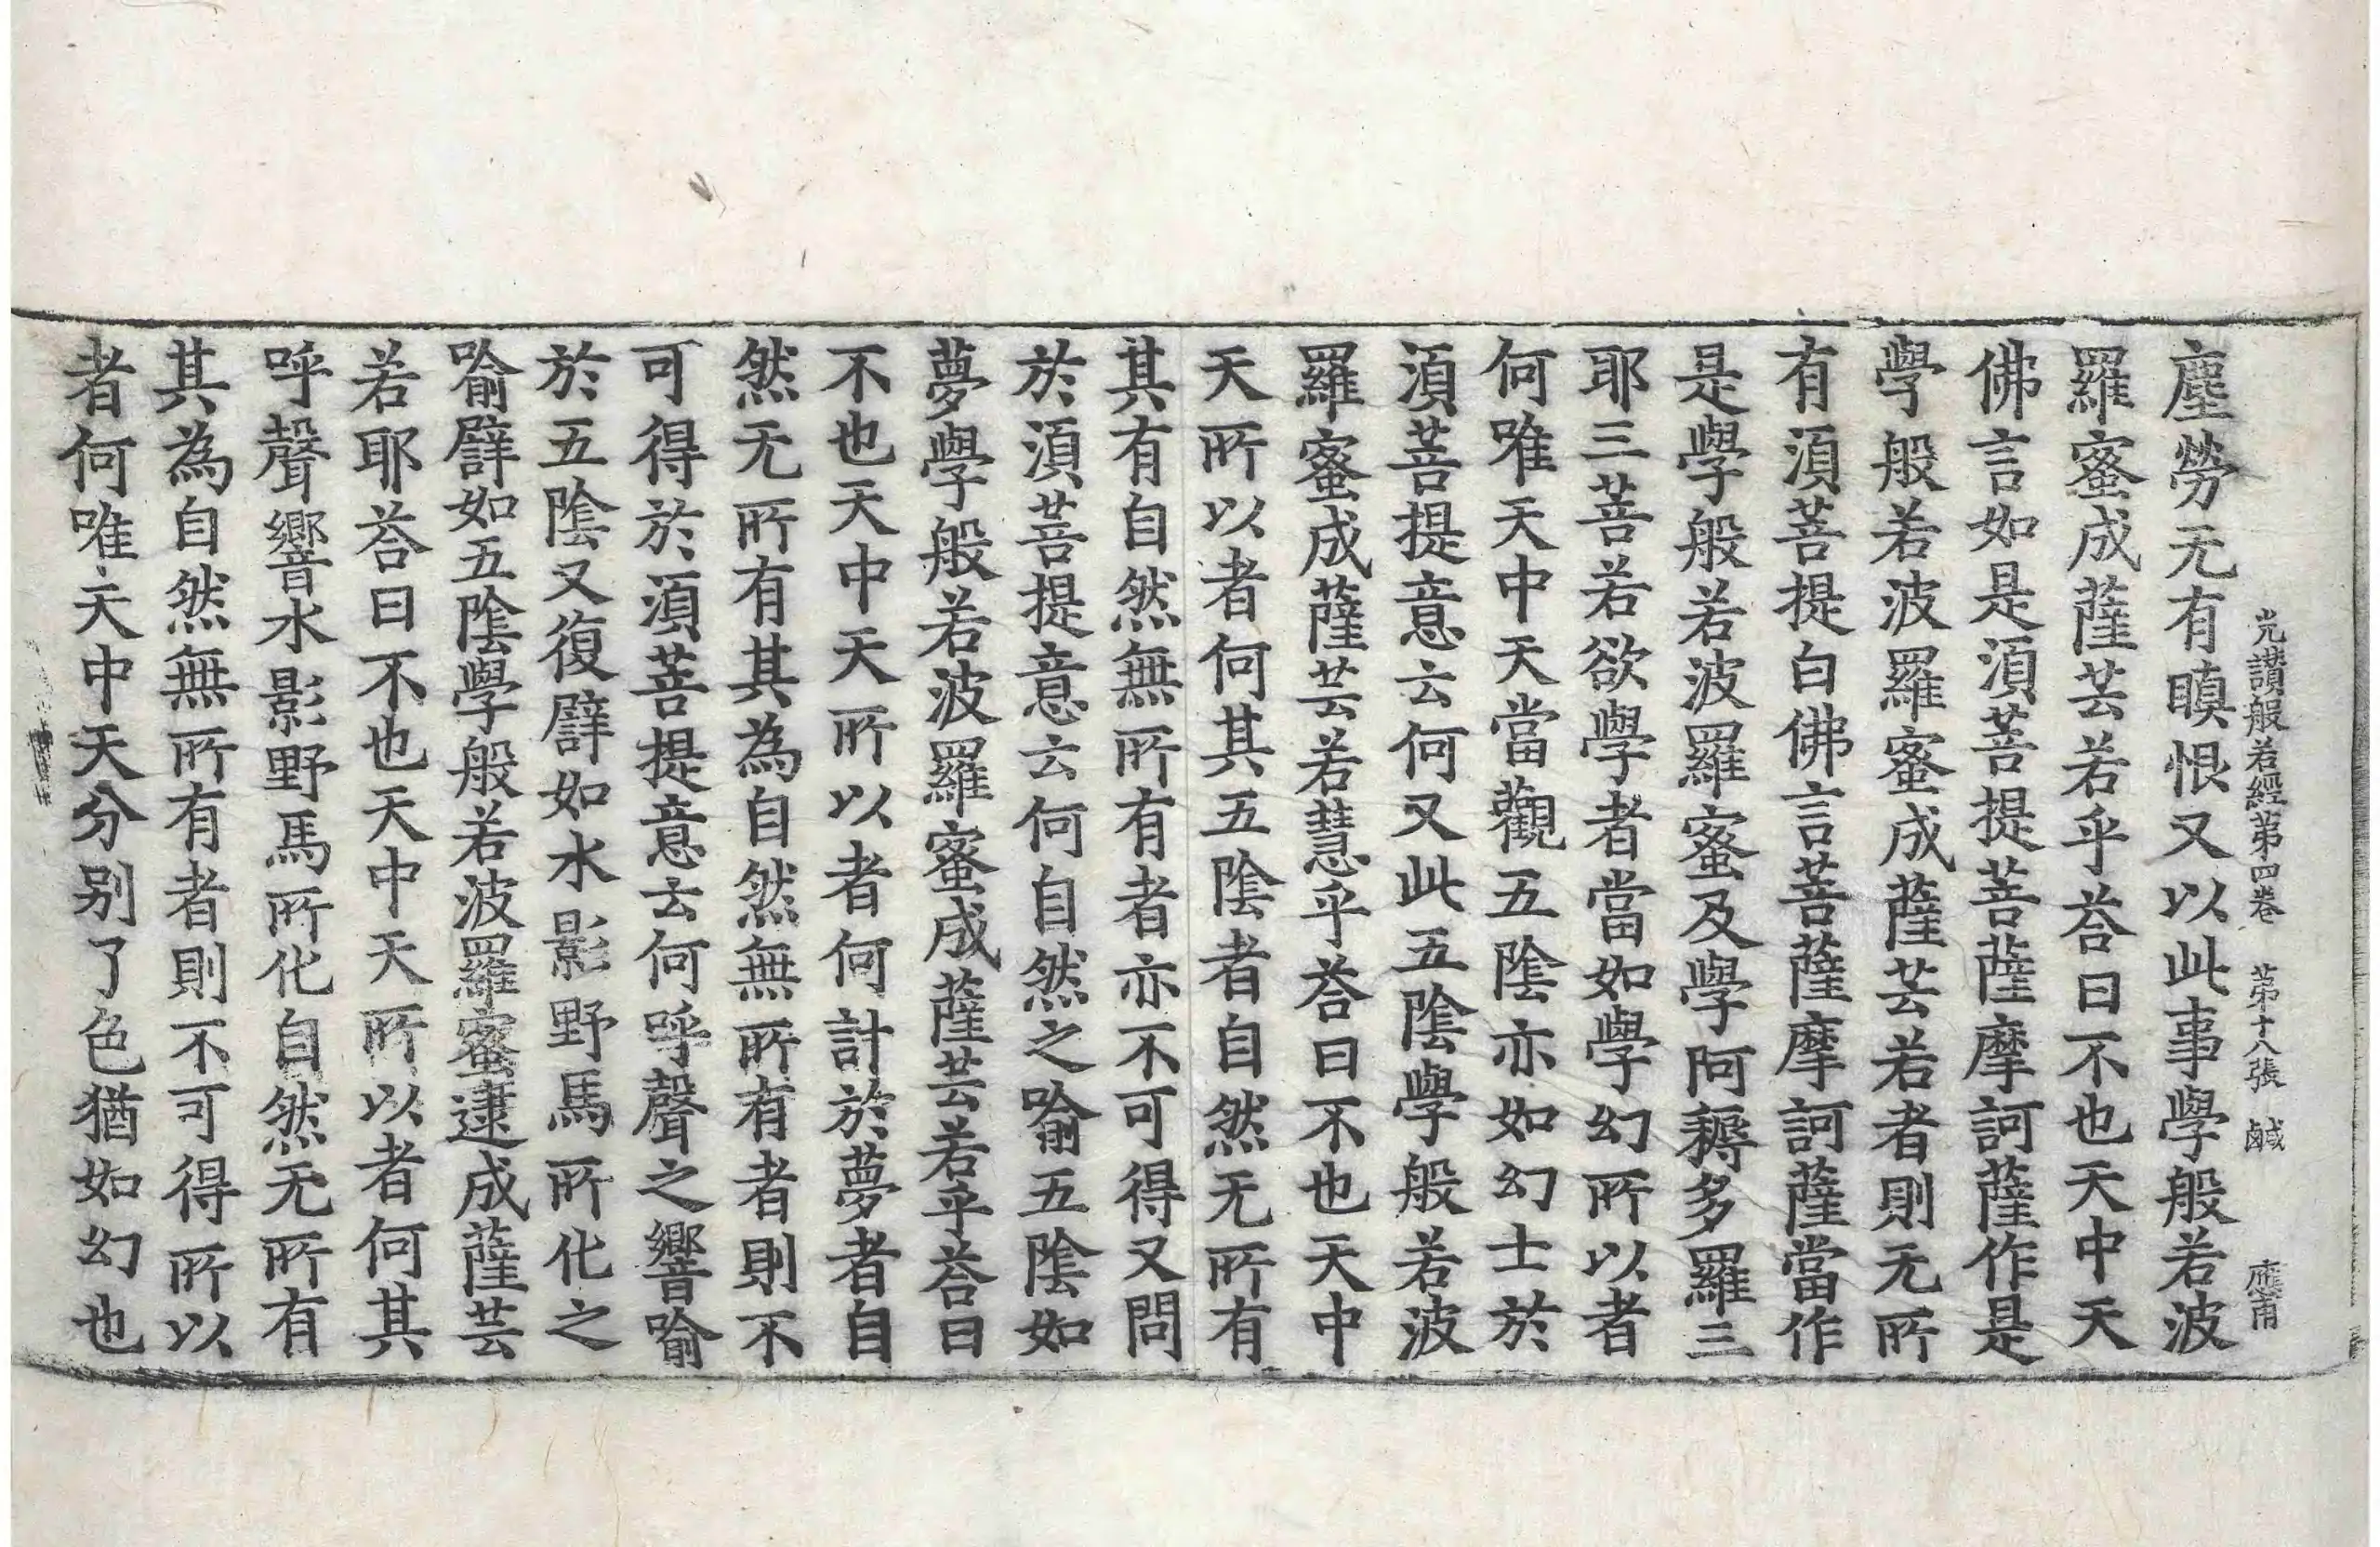 光讚般若經第四卷　第十八張　鹹　應甫
塵勞无有瞋恨又以此事學般若波
羅蜜成薩芸若乎荅曰不也天中天
佛言如是湏菩提菩薩摩訶薩作是
學般若波羅蜜成薩芸若者則无所
有湏菩提白佛言菩薩摩訶薩當作
是學般若波羅蜜及學阿耨多羅三
耶三菩若欲學者當如學幻所以者
何唯天中天當觀五隂亦如幻士於
湏菩提意云何又此五隂學般若波
羅蜜成薩芸若慧乎荅曰不也天中
天所以者何其五隂者自然无所有
其有自然無所有者亦不可得又問
於湏菩提意云何自然之喻五隂如
夢學般若波羅蜜成薩芸若乎荅曰
不也天中天所以者何計於夢者自
然无所有其為自然無所有者則不
可得於湏菩提意云何呼聲之響喻
於五隂又復譬如水影野馬所化之
喻譬如五隂學般若波羅蜜逮成薩芸
若耶荅曰不也天中天所以者何其
呼聲響水影野馬所化自然无所有
其為自然無所有者則不可得所以
者何唯天中天分别了色猶如幻也